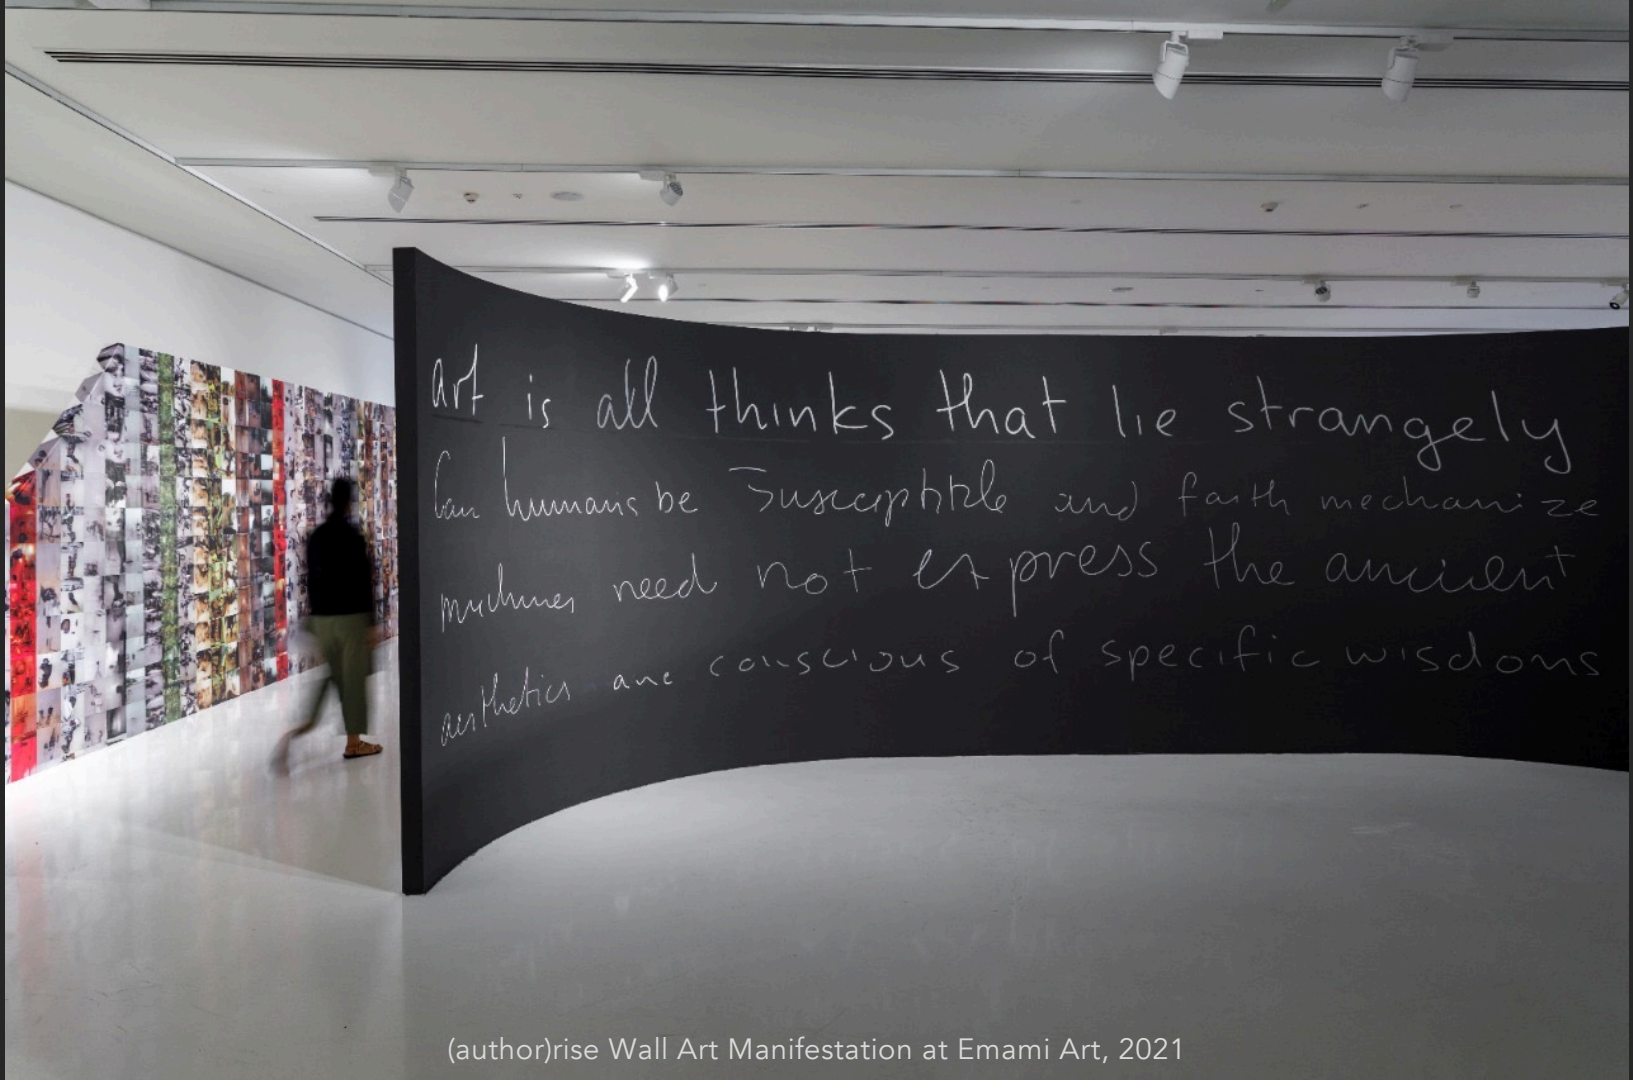 art is all thinks that lie strangely
Can humans be Susceptible and faith mechanize
machines need not express the ancient
aesthetics are conscious of specific wisdoms
(author)rise Wall Art Manifestation at Emami Art, 2021